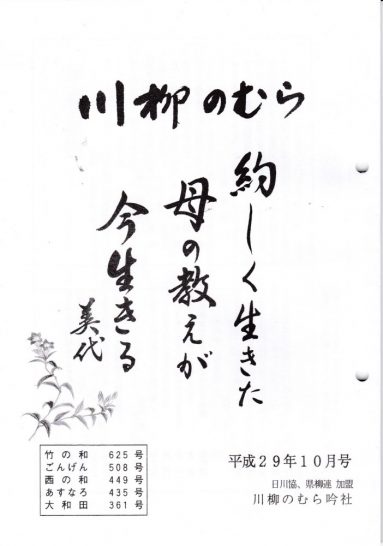 川柳のむら
約しく生きた
母の教えが
今生きる
美代
竹の和 625号
ごんげん 508号
西の和 449号
あすなろ 435号
大和田 361号
平成29年10月号
日川協、県柳連 加盟
川柳のむら吟社